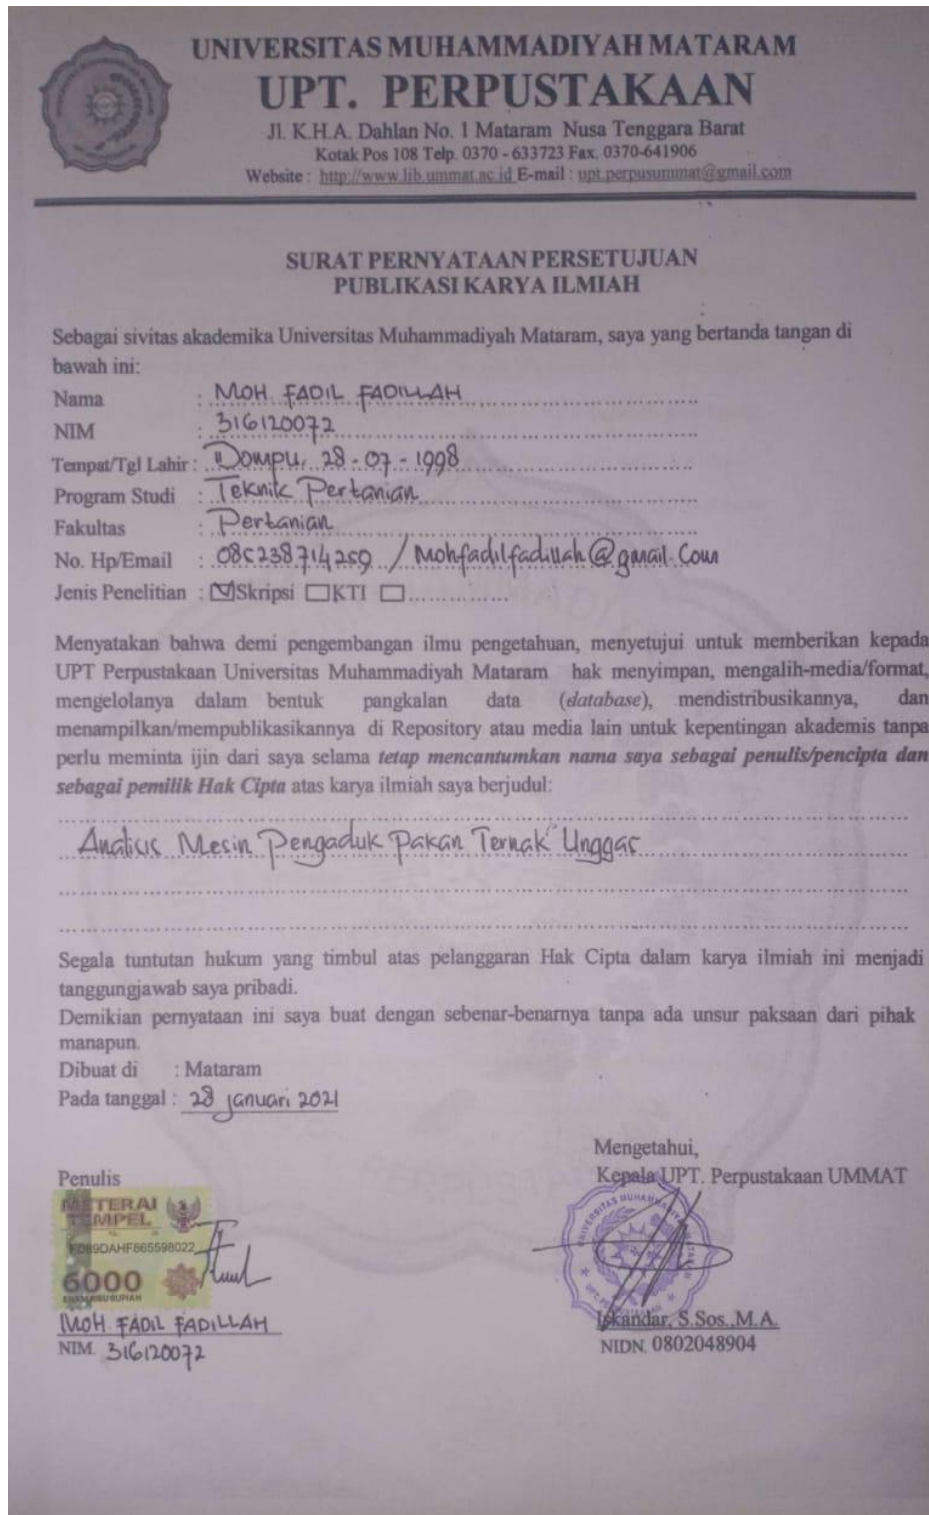 UNIVERSITAS MUHAMMADIYAH MATARAM
UPT. PERPUSTAKAAN
Jl. K.H.A. Dahlan No. 1 Mataram Nusa Tenggara Barat
Kotak Pos 108 Telp. 0370 - 633723 Fax. 0370-641906
Website : http://www.lib.ummat.ac.id E-mail : upt.perpusummat@gmail.com
SURAT PERNYATAAN PERSETUJUAN
PUBLIKASI KARYA ILMIAH
Sebagai sivitas akademika Universitas Muhammadiyah Mataram, saya yang bertanda tangan di
bawah ini:
Nama : MOH. FADIL FADILLAH
NIM : 316120072
Tempat/Tgl Lahir : Dompu, 28-07-1998
Program Studi : Teknik Pertanian
Fakultas : Pertanian
No. Hp/Email : 085238714259 / Mohfadilfadillah@gmail.Com
Jenis Penelitian : ☑Skripsi ☐KTI ☐...............
Menyatakan bahwa demi pengembangan ilmu pengetahuan, menyetujui untuk memberikan kepada
UPT Perpustakaan Universitas Muhammadiyah Mataram hak menyimpan, mengalih-media/format,
mengelolanya dalam bentuk pangkalan data (database), mendistribusikannya, dan
menampilkan/mempublikasikannya di Repository atau media lain untuk kepentingan akademis tanpa
perlu meminta ijin dari saya selama tetap mencantumkan nama saya sebagai penulis/pencipta dan
sebagai pemilik Hak Cipta atas karya ilmiah saya berjudul:
Analisis Mesin Pengaduk Pakan Ternak Unggas
Segala tuntutan hukum yang timbul atas pelanggaran Hak Cipta dalam karya ilmiah ini menjadi
tanggungjawab saya pribadi.
Demikian pernyataan ini saya buat dengan sebenar-benarnya tanpa ada unsur paksaan dari pihak
manapun.
Dibuat di : Mataram
Pada tanggal : 28 januari 2021
Mengetahui,
Penulis
Kepala UPT. Perpustakaan UMMAT
METERAI
TEMPEL
FD89DAHF865598022
6000
ENAM RIBU RUPIAH
MOH. FADIL FADILLAH
NIM. 316120072
Iskandar, S.Sos., M.A.
NIDN. 0802048904